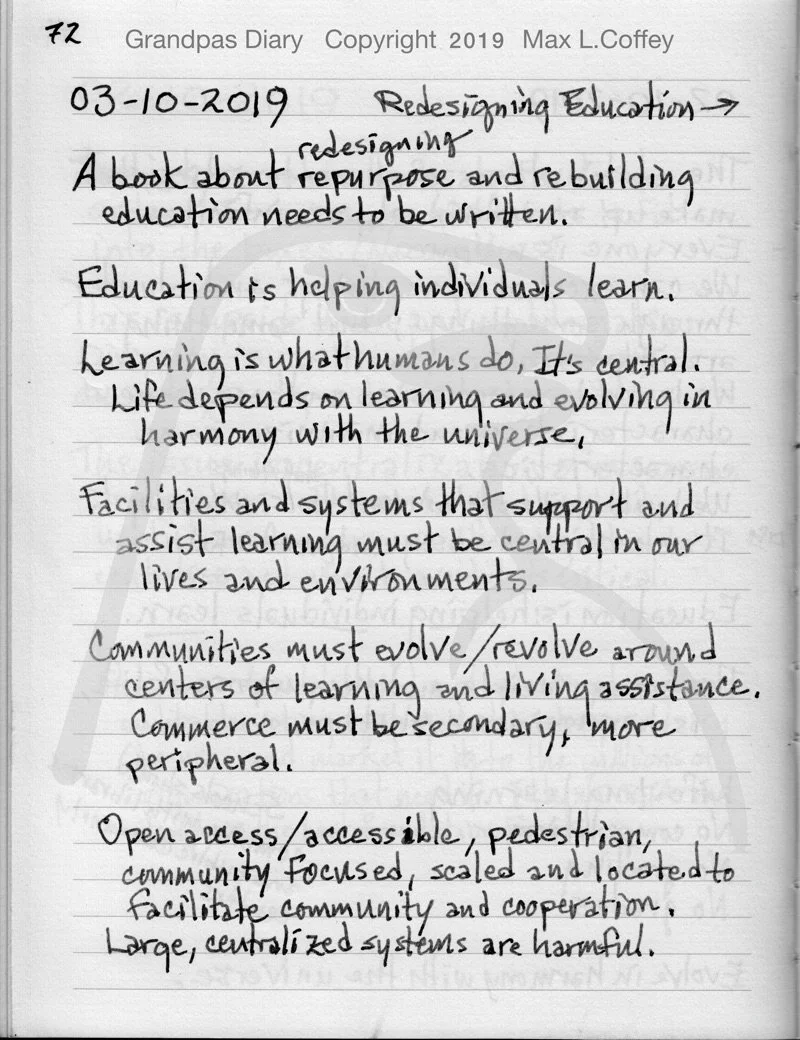 72 Grandpas Diary Copyright 2019 Max L.Coffey
03-10-2019 Redesigning Education →
redesigning
A book about repurpose and rebuilding
education needs to be written.
Education is helping individuals learn.
Learning is what humans do, It's central.
Life depends on learning and evolving in
harmony with the universe,
Facilities and systems that support and
assist learning must be central in our
lives and environments.
Communities must evolve/revolve around
centers of learning and living assistance.
Commerce must be secondary, more
peripheral.
Open access/accessible, pedestrian,
community focused, scaled and located to
facilitate community and cooperation.
Large, centralized systems are harmful.